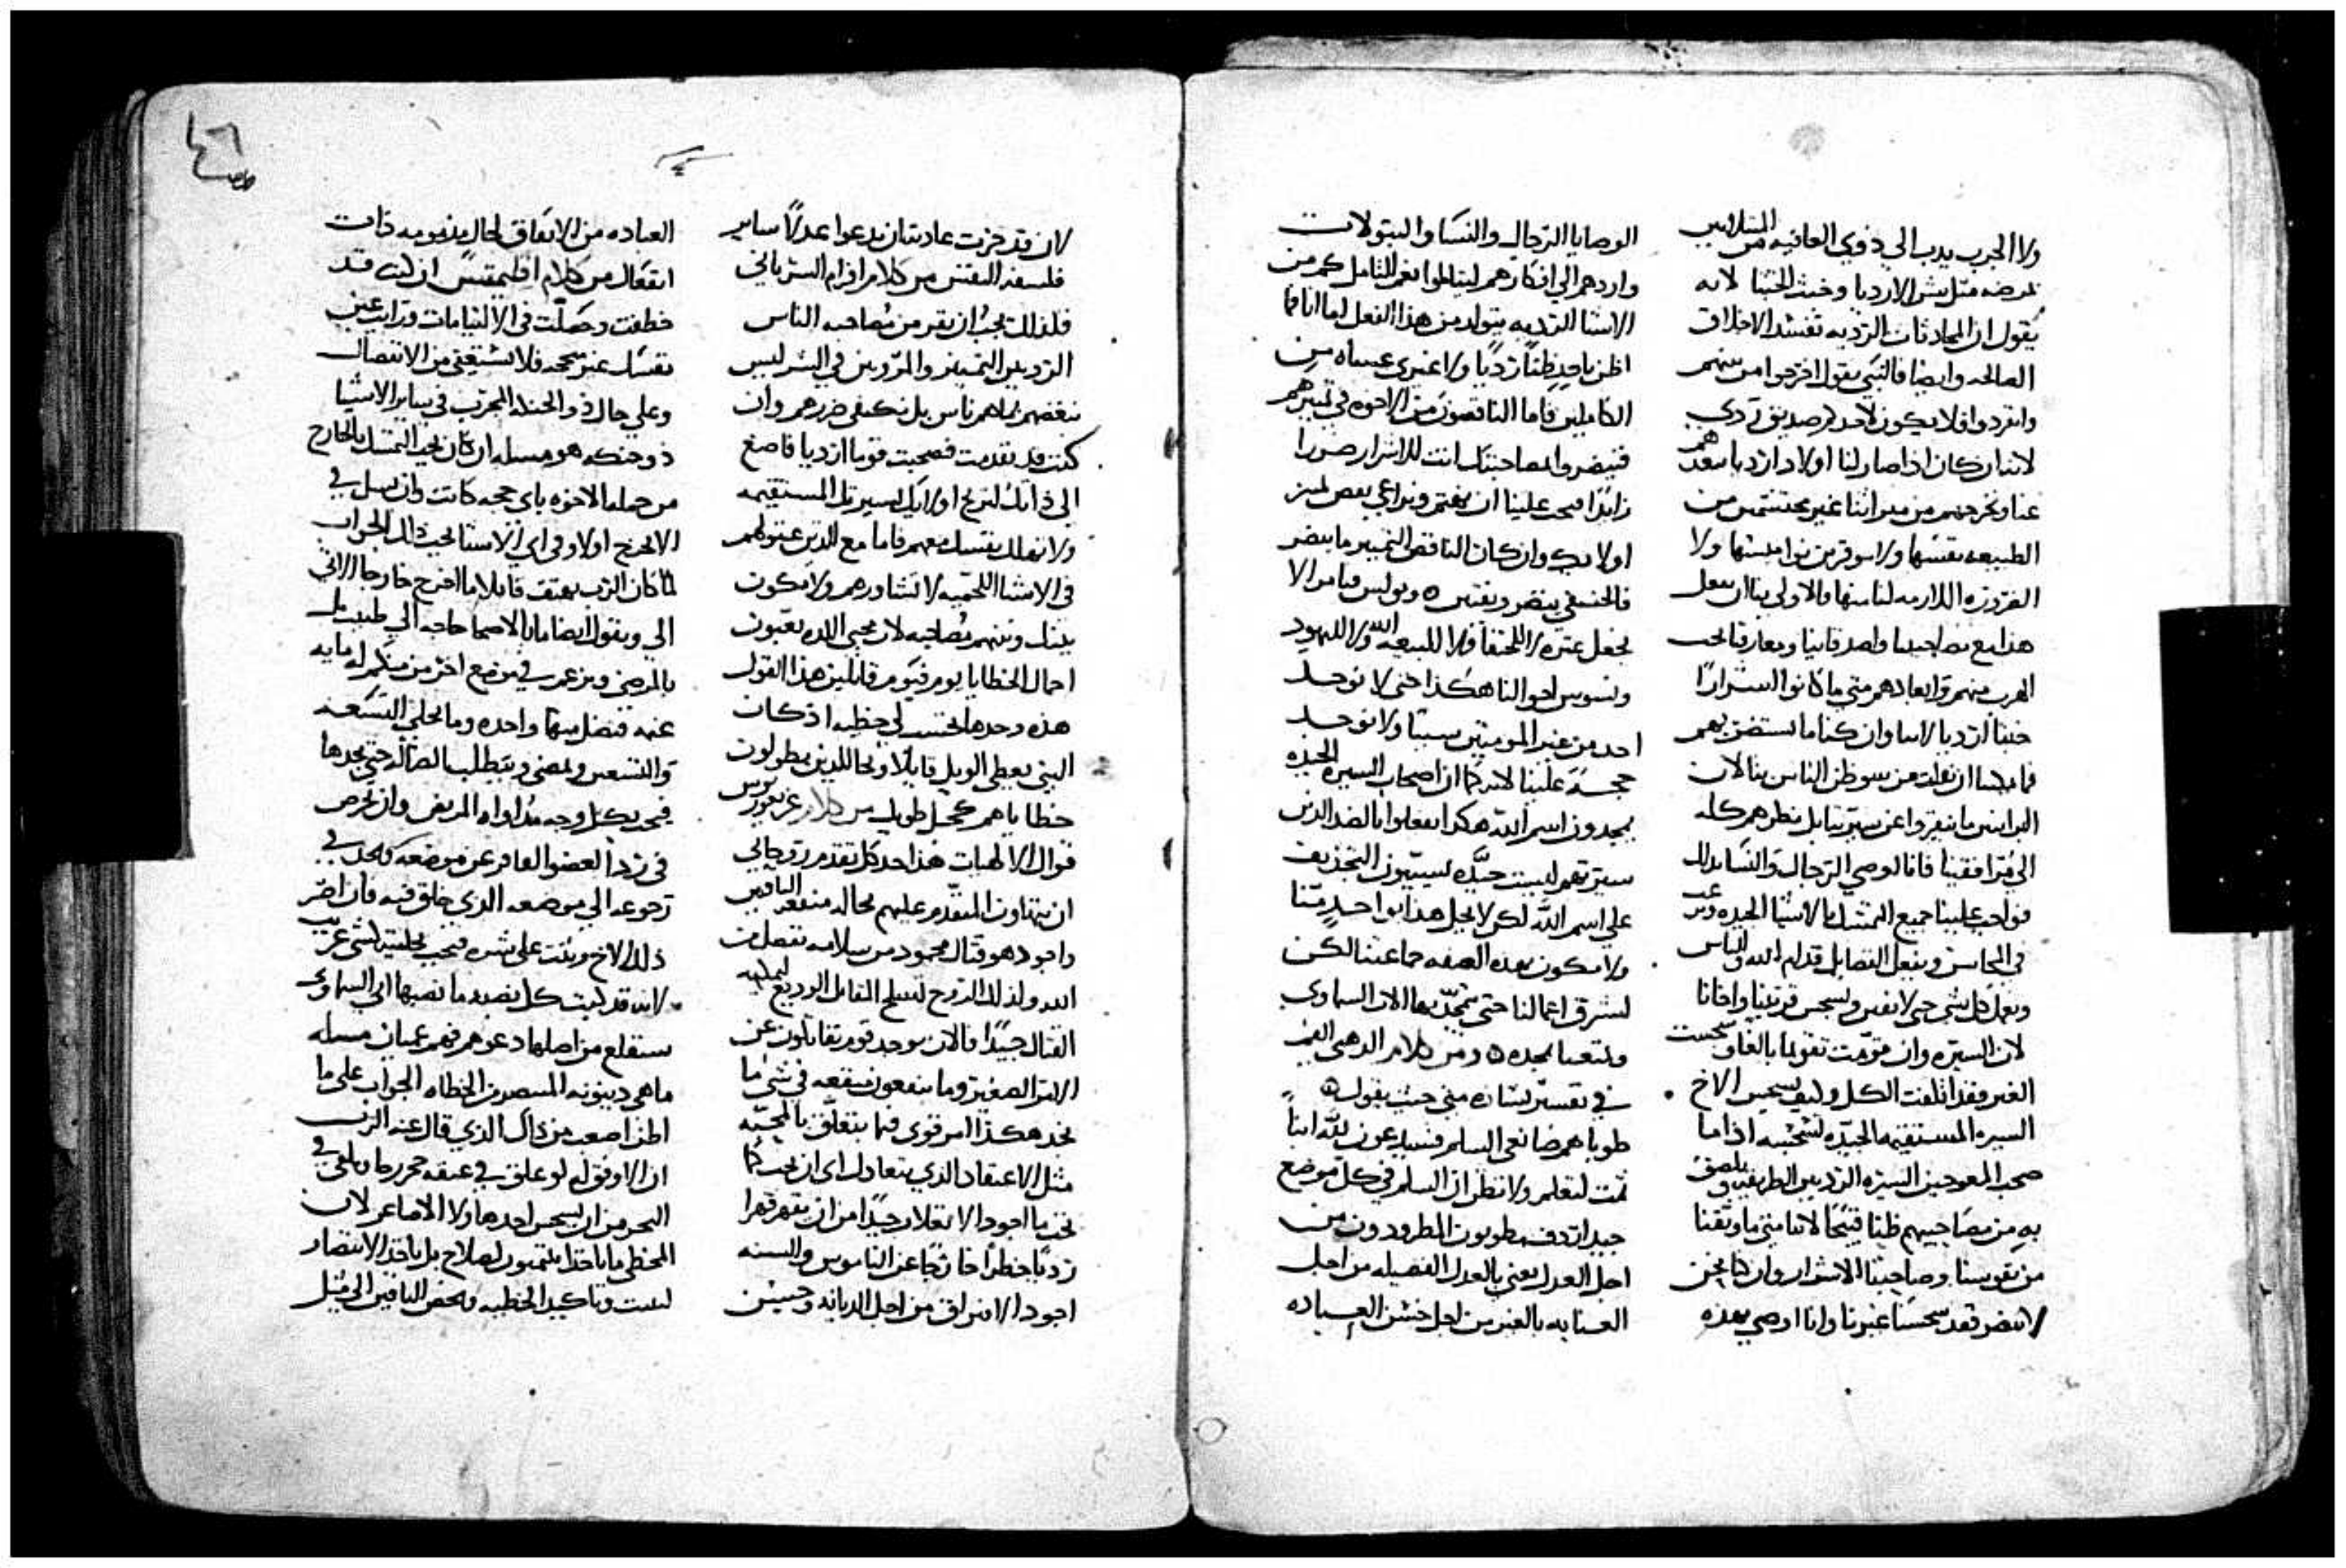 ولا الجرب يدب الي ذوي العافيه من المتلابس
لمرضه مثل بشر الارديا وخبث الخبثا لانه
يقول ان المحادثات الرديه تفسد الاخلاق
الصالحه وايضا فالنبي يقول اخرجوا من بينهم
وانفردوا فلا يكون لاحد صديق ردي
لاننا ان كان اذا صار لنا اولاد ارديا نبعدهم
عنا ونخرجهم من ميراثنا غير محتشمين من
الطبيعه نفسها ولا موقرين نواميسها ولا
الضروره اللازمه لنا منها فالاولي بنا ان نفعل
هذا مع مصاحبينا واصدقاينا ومعارفنا نحب
الهرب منهم وابعادهم متي ما كانوا اشرارًا
خبثاً ارديا لاننا وان كنا ما نستضر بهم
فما يمكننا ان نفلت من سوظن الناس بنا لان
البرانيين ما يفرزوا عن سيرتنا بل نظرهم كله
الي مرافقينا فانا اوصي الرجال والنسا بذلك
فواجب علينا جميع التمسك بالاشيا الجيده
في المحاسن ونفعل الفضايل قدام الله والناس
ونعمل كل شي حتي لا نغبن ونسجس قريبنا واخانا
لان السيره وان قومت تقويما بالغا وسجست
الغير فقد اتلفت الكل وكيف يسجس الاخ
السيره المستقيمه الجيده لسجسه اذا ما
صحب المعوجين السيره الرديين الطريقه ويلصق
به من مصاحبيهم ظنا قبيحًا لاننا متي ما وثقنا
من نفوسنا وصاحبنا الاشرار وان كنا نحن
لا نضر فقد سجسنا غيرنا وانا اوصي بهذه
الوصايا الرجال والنسا والبتولات
واردهم الي افكارهم ليتاملوا نعم التامل كم من
الاشيا الرديه يتولد من هذا الفعل اما انا فما
اظن باحد ظناً رديًا ولا غيري عساه من
الكاملين فاما الناقصون من الاخوه في تمييزهم
فيتضروا بمصاحبتك انت للاشرار ضررا
زايدًا فيجب علينا ان نهتم ونراعي بعض لميز
اولايك وان كان الناقص التمييز ما يتضر
فالحنفي يتضر ويغتبن ٥ وبولس فيامر الا
نجعل عثره لا للحنفا ولا لبيعه الله ولا لليهود
ونسوس احوالنا هكذا حتي لا نوجد
احد من غير المومنين سببًا ولا نوجد
حجه علينا لانه كما ان اصحاب السيره الجيده
يمجدون اسم الله هكذا يفعلوا بالضد الذين
سيرتهم ليست جيده يسببون التجذيف
علي اسم الله لكن لا يحل هذا بواحد منا
ولا يكون بهذه الصفه جماعتنا لكن
لتشرق اعمالنا حتي يتمجد بها الاب السماوي
ونتمتعا بمجده ٥ ومن كلام الذهبي الفم
في تفسير بشاره متي حيث يقول ٥
طوباهم صانعي السلم فسيدعون لله ابناً
ثمت لتعلم ولا تظن ان السلم في كل موضع
جيد اردف مطوبون المطرودون من
اجل العدل يعني بالعدل الفضيله من اجل
العنايه بالغير من اجل حسن العباده
لان قد جرت عادته ان يدعوا عدلًا ساير
فلسفه النفس من كلام افرام السرياني
فلذلك يجب ان نفر من مصاحبه الناس
الرديين التمييز والمروين في الشر ليس
نبغضهم كانهم ناس بل نكتفي ضررهم وان
كنت قد تقدمت فصحبت قوما ارديا فاصغ
الي ذاتك لتربح اولايك لسيرتك المستقيمه
ولا تهلك نفسك معهم فاما مع الذين عتوهم
في الاشيا اللحميه لا تشاورهم ولا يكون
بينك وبينهم مصاحبه لان محبي اللذه يعبون
احمال الخطايا يوم فيوم قايلين هذا القول
هذه وحدها تحتسب لي خطيه اذ كان
النبي يعطي الويل قايلًا ويحا للذين يطولون
خطاياهم كحبل طويل من كلام غريغوريوس
في المقال الالهيات هذا حد كل تقدم روحاني
ان يتهاون المتقدم عليهم بحاله منفعه الباقين
واجود هو قتال محمود من سلامه تفصل من
الله ولذلك الروح يسلح القابل الوديع لحليه
القتال جيدًا فالان يوجد قوم يقاتلون عن
الامر الصغير وما ينفعون منفعه في شي ما
نجد هكذا امر قوي فيما يتعلق بالمحبه
مثل الاعتقاد الذي يتعادل اي ان يحب كما
نحب ما اجود الانغلاب جيدًا من ان نقهر قهرا
رديًا خطرًا خارجًا عن الناموس والسنه
اجود الافتراق من اجل الديانه وحسن
ص ٤٦١
العباده من الاتفاق لحال مذمومه ذات
انفعال من كلام اقليمقس ان كنت قد
خطفت وحصلت في الالتيامات ورايت عين
نفسك غير صحيحه فلا تستعفي من الانفصال
وعلي حال ذو الحنكه المجرب في ساير الاشيا
ذو حنكه هو مسله ان كان يجب التمسك بالخارج
من جمله الاخوه باي حجه كانت وان يسل في
الاخرج اولا وفي اي الاشيا يجب ذلك الجواب
لما كان الرب يهتف قايلا ما اخرج خارجا الاتي
الي ويقول ايضا ما بالاصحا حاجه الي طبيب بل
بالمرضي ومن عرف في موضع اخر من منكم له مايه
غنمه فتضل منها واحده وما يخلي التسعه
والتسعين ويمضي ويتطلب الضاله حتي يجدها
فيجب بكل وجه مداواه المريض وان نحرص
في رد العضو العاقر عن موضعه ونجد في
رجوعه الي موضعه الذي خلق فيه فان اضر
ذلك الاخ وثبت علي شره فيجب تخليته كشي غريب
لانه قد كتب كل نصبه ما نصبها ابي السماوي
ستقلع من اصلها دعوهم فهم عميان مسله
ماهي دينونه المسجسين الخطاه الجواب علي ما
اظن اصعب من ذاك الذي قال عنه الرب
ان الاوفق له لو علق في عنقه حجر رحا ويلقي في
البحر من ان يسجس احد هاولا الاصاغر لان
المخطي ما ياخذ ايلتمسون لصلاح بل ياخذ الانتصار
لتثبت وتاكيد الخطيه ويحض الباقين الي مثل